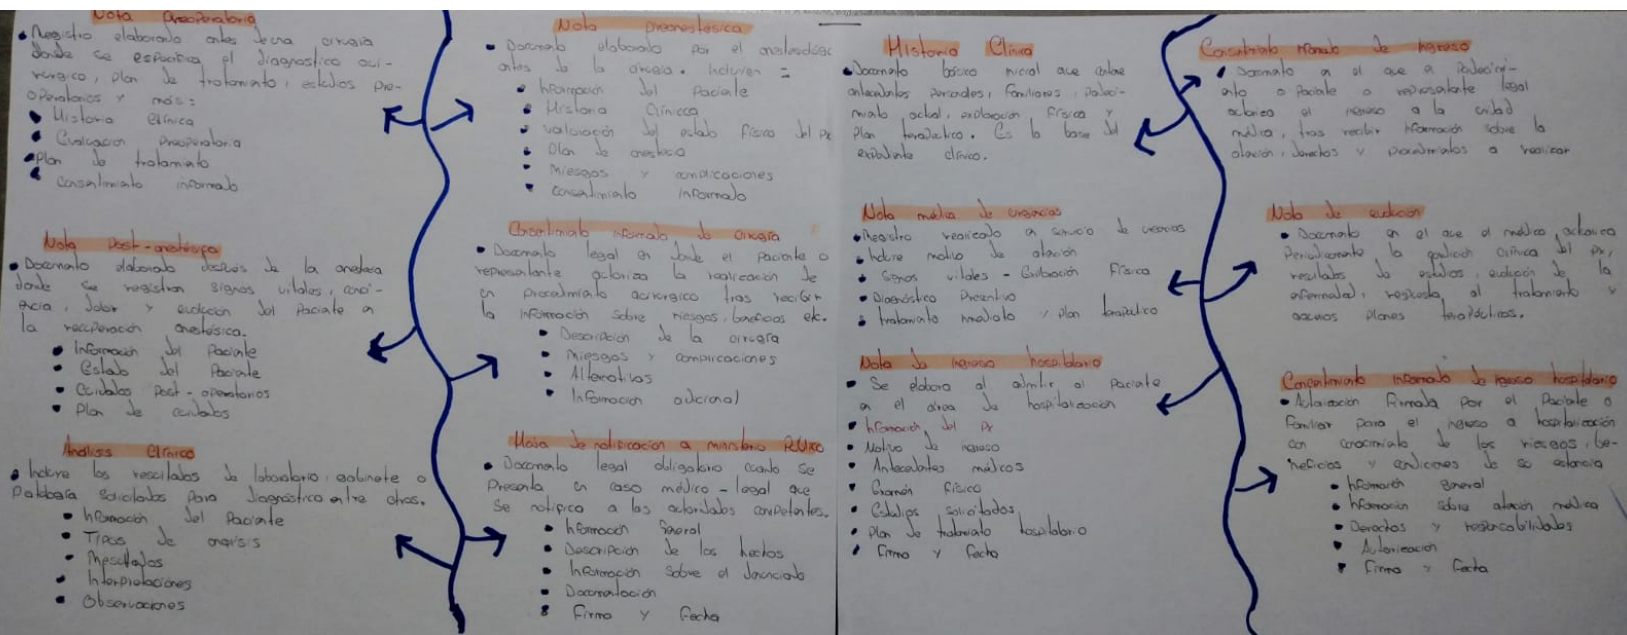 Nota Preoperatoria
• Registro elaborado antes de una cirugía
donde se especifica el diagnostico qui-
rurgico, plan de tratamiento, estudios pre-
operatorios y más:
• Historia clínica
• Evaluación Preoperatoria
• Plan de tratamiento
• Consentimiento informado
Nota Post-anestésica
• Documento elaborado después de la anestesia
donde se registran signos vitales, conci-
encia, dolor y evolución del Paciente en
la recuperación anestésica.
• Información del Paciente
• Estado del Paciente
• Cuidados Post-operatorios
• Plan de cuidados
Análisis Clínico
• Incluye los resultados de laboratorio, gabinete o
solicitados para diagnóstico entre otros.
• Información del Paciente
• Tipos de analisis
• Resultados
• Interpretaciones
• Observaciones
Nota preanestésica
• Documento elaborado por el anestesiólogo
antes de la cirugía. Incluyen =
• Información del Paciente
• Historia Clínica
• Valoración del estado físico del px
• Plan de anestesia
• Riesgos y complicaciones
• Consentimiento informado
Consentimiento informado de cirugía
• Documento legal en donde el paciente o
representante autoriza la realización de
un procedimiento quirurgico tras recibir
la información sobre riesgos, beneficios etc.
• Descripción de la cirugía
• Riesgos y complicaciones
• Alternativas
• Información adicional
Hoja de notificación a ministerio Público
• Documento legal obligatorio cuando se
Presenta un caso médico-legal que
se notifica a las autoridades competentes.
• Información General
• Descripción de los hechos
• Información sobre el denunciado
• Documentación
• Firma y Fecha
Historia Clínica
• Documento básico inicial que contiene
antecedentes personales, familiares, padeci-
miento actual, exploración física y
Plan terapéutico. Es la base del
expediente clínico.
Nota médica de urgencias
• Registro realizado en servicio de urgencias
• Incluye motivo de atención
• Signos vitales - Exploración Física
• Diagnóstico Presuntivo
• tratamiento inmediato y plan terapéutico
Nota de ingreso hospitalario
• Se elabora al admitir al Paciente
en el área de hospitalización
• Información del Px
• Motivo de ingreso
• Antecedentes médicos
• Examén físico
• Estudios solicitados
• Plan de tratamiento hospitalario
• Firma y fecha
Consentimiento de ingreso
• Documento en el que
o paciente o representante legal
autoriza el ingreso a la unidad
médica, tras recibir información sobre la
atención, derechos y procedimientos a realizar
Nota de evolución
• Documento en el que el médico actualiza
Periodicamente la condición clínica del px,
resultados de estudios, evolución de la
enfermedad, respuesta al tratamiento y
nuevos planes terapéuticos.
Concentimiento informado de ingreso hospitalario
• Autorización firmada por el Paciente o
familiar para el ingreso a hospitalización
con conocimiento de los riesgos, be-
neficios y condiciones de su estancia
• Información general
• Información sobre atención médica
• Derechos y responsabilidades
• Autorización
• Firma y Fecha